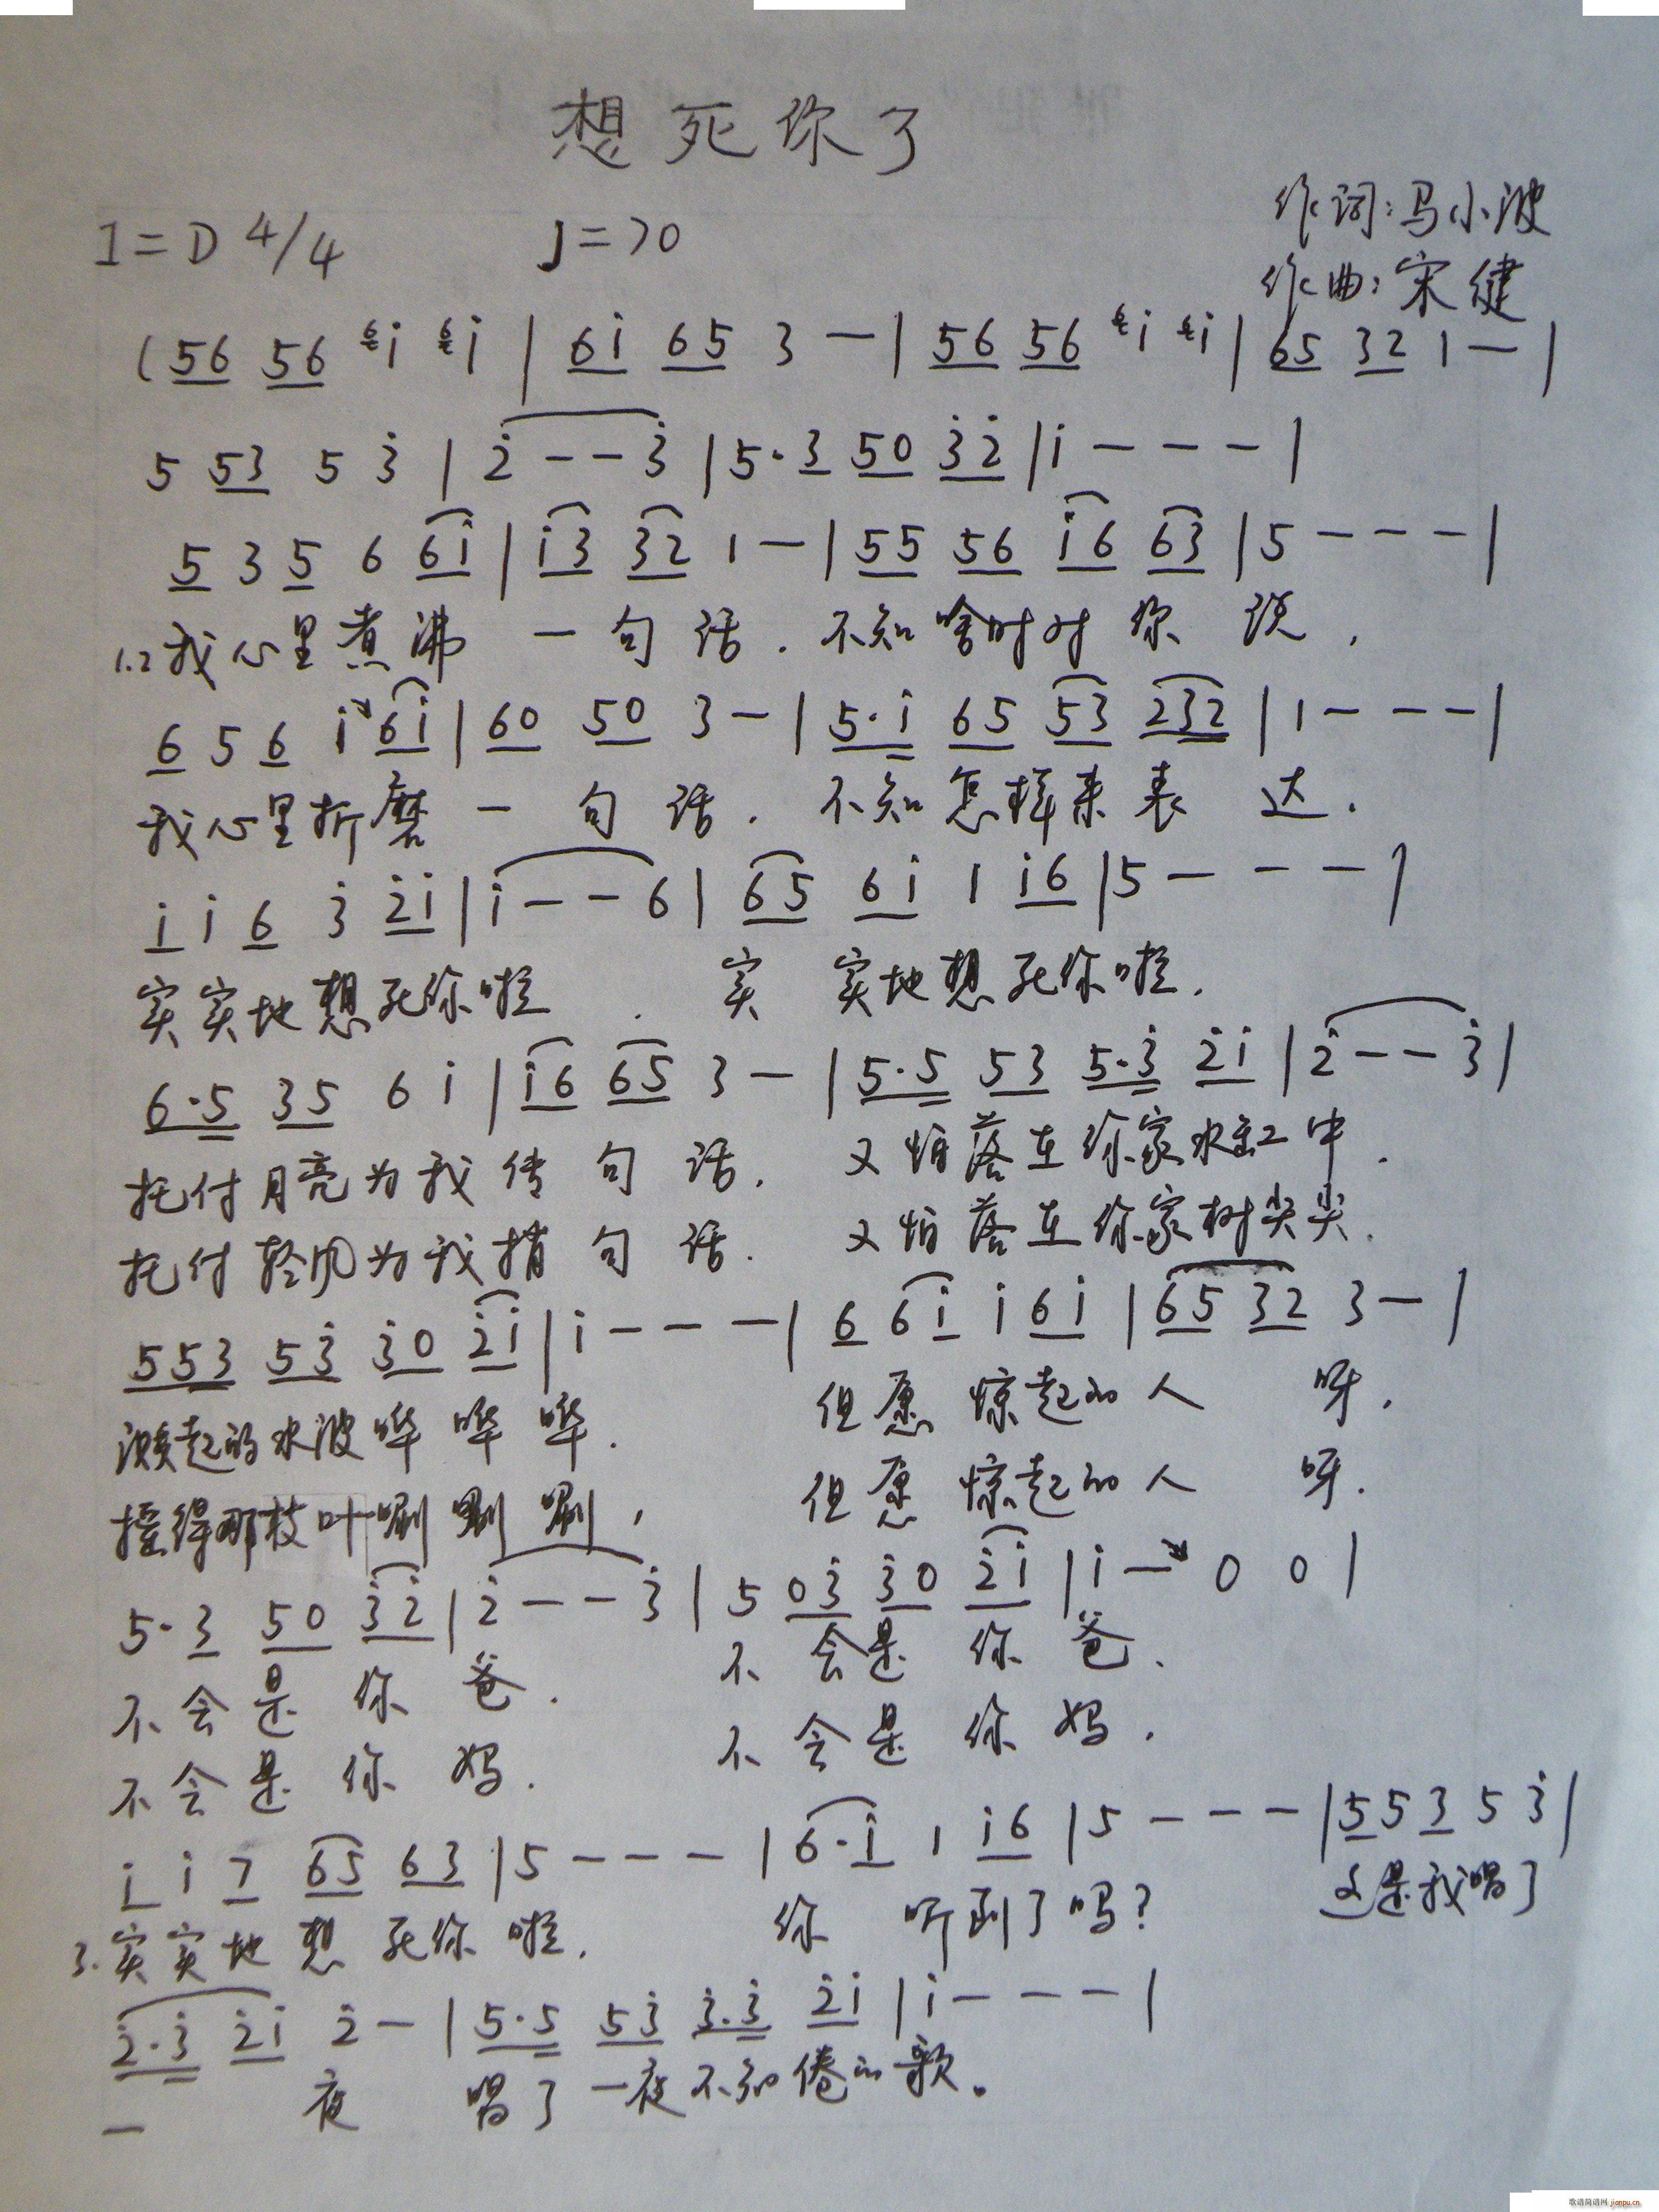 想死你了
作词:马小波
1=D 4/4 ♩=70
作曲:宋健
(56 56 ⁶i ⁶i | 6i 65 3 — | 56 56 ⁶i ⁶i | 65 32 1 — |
5 53 5 3̇ | 2̇ — — 3̇ | 5·3 50 3̇2̇ | i — — — |
5 3 5 6 6i | i3 32 1 — | 55 56 i6 63 | 5 — — — |
1.2我心里煮沸一句话.不知啥时对你说,
6 5 6 i 6i | 60 50 3 — | 5·i 65 53 232 | 1 — — — |
我心里折磨一句话.不知怎样来表达.
i i 6 3̇ 2̇i | i — — 6 | 65 6i 1 i6 | 5 — — — |
实实地想死你啦.实实地想死你啦.
6·5 35 6 i | i6 65 3 — | 5·5 53 5·3̇ 2̇i | 2̇ — — 3̇ |
托付月亮为我传句话.又怕落在你家水缸中.
托付轻风为我捎句话.又怕落在你家树尖尖.
553 53̇ 3̇0 2̇i | i — — — | 6 6i i 6i | 65 32 3 — |
溅起的水波哗哗哗.但愿惊起的人呀.
摇得那枝叶唰唰唰,但愿惊起的人呀.
5·3 50 3̇2̇ | 2̇ — — 3̇ | 5 03̇ 3̇0 2̇i | i — 0 0 |
不会是你爸.不会是你爸.
不会是你妈.不会是你妈.
i i 7 65 63 | 5 — — — | 6·i 1 i6 | 5 — — — | 5 5 3 5 3̇ |
3.实实地想死你啦.你听到了吗?这是我唱了
2̇·3̇ 2̇i 2̇ — | 5·5 53̇ 3̇·3̇ 2̇i | i — — — |
一夜唱了一夜不知倦的歌。
歌谱简谱网 jianpu.cn